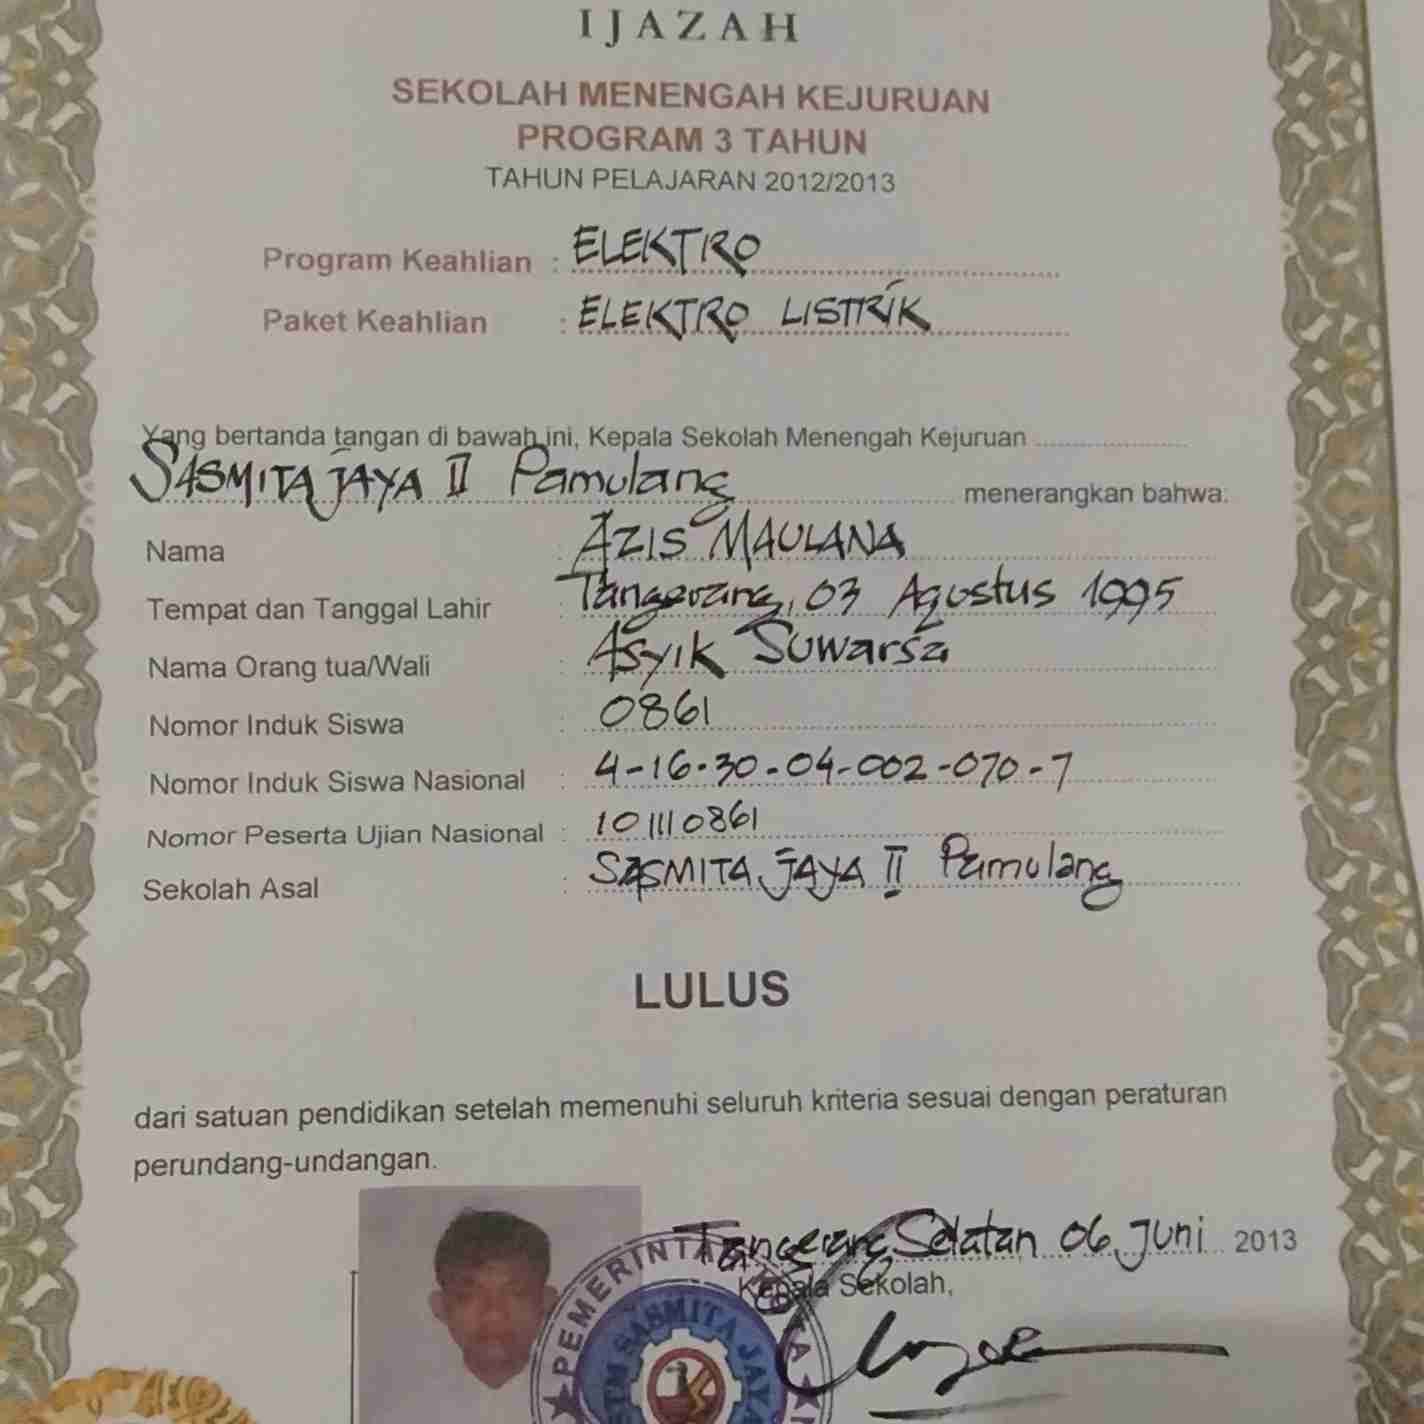 IJAZAH
SEKOLAH MENENGAH KEJURUAN
PROGRAM 3 TAHUN
TAHUN PELAJARAN 2012/2013
Program Keahlian : ELEKTRO
Paket Keahlian : ELEKTRO LISTRIK
Yang bertanda tangan di bawah ini, Kepala Sekolah Menengah Kejuruan
SASMITA JAYA II Pamulang menerangkan bahwa:
Nama : AZIS MAULANA
Tempat dan Tanggal Lahir : Tangerang, 03 Agustus 1995
Nama Orang tua/Wali : Asyik Suwarsa
Nomor Induk Siswa : 0861
Nomor Induk Siswa Nasional : 4-16-30-04-002-070-7
Nomor Peserta Ujian Nasional : 101110861
Sekolah Asal : SASMITA JAYA II Pamulang
LULUS
dari satuan pendidikan setelah memenuhi seluruh kriteria sesuai dengan peraturan
perundang-undangan.
Tangerang Selatan 06 Juni 2013
Kepala Sekolah,
PEMERINTA
STM SASMITA JAYA